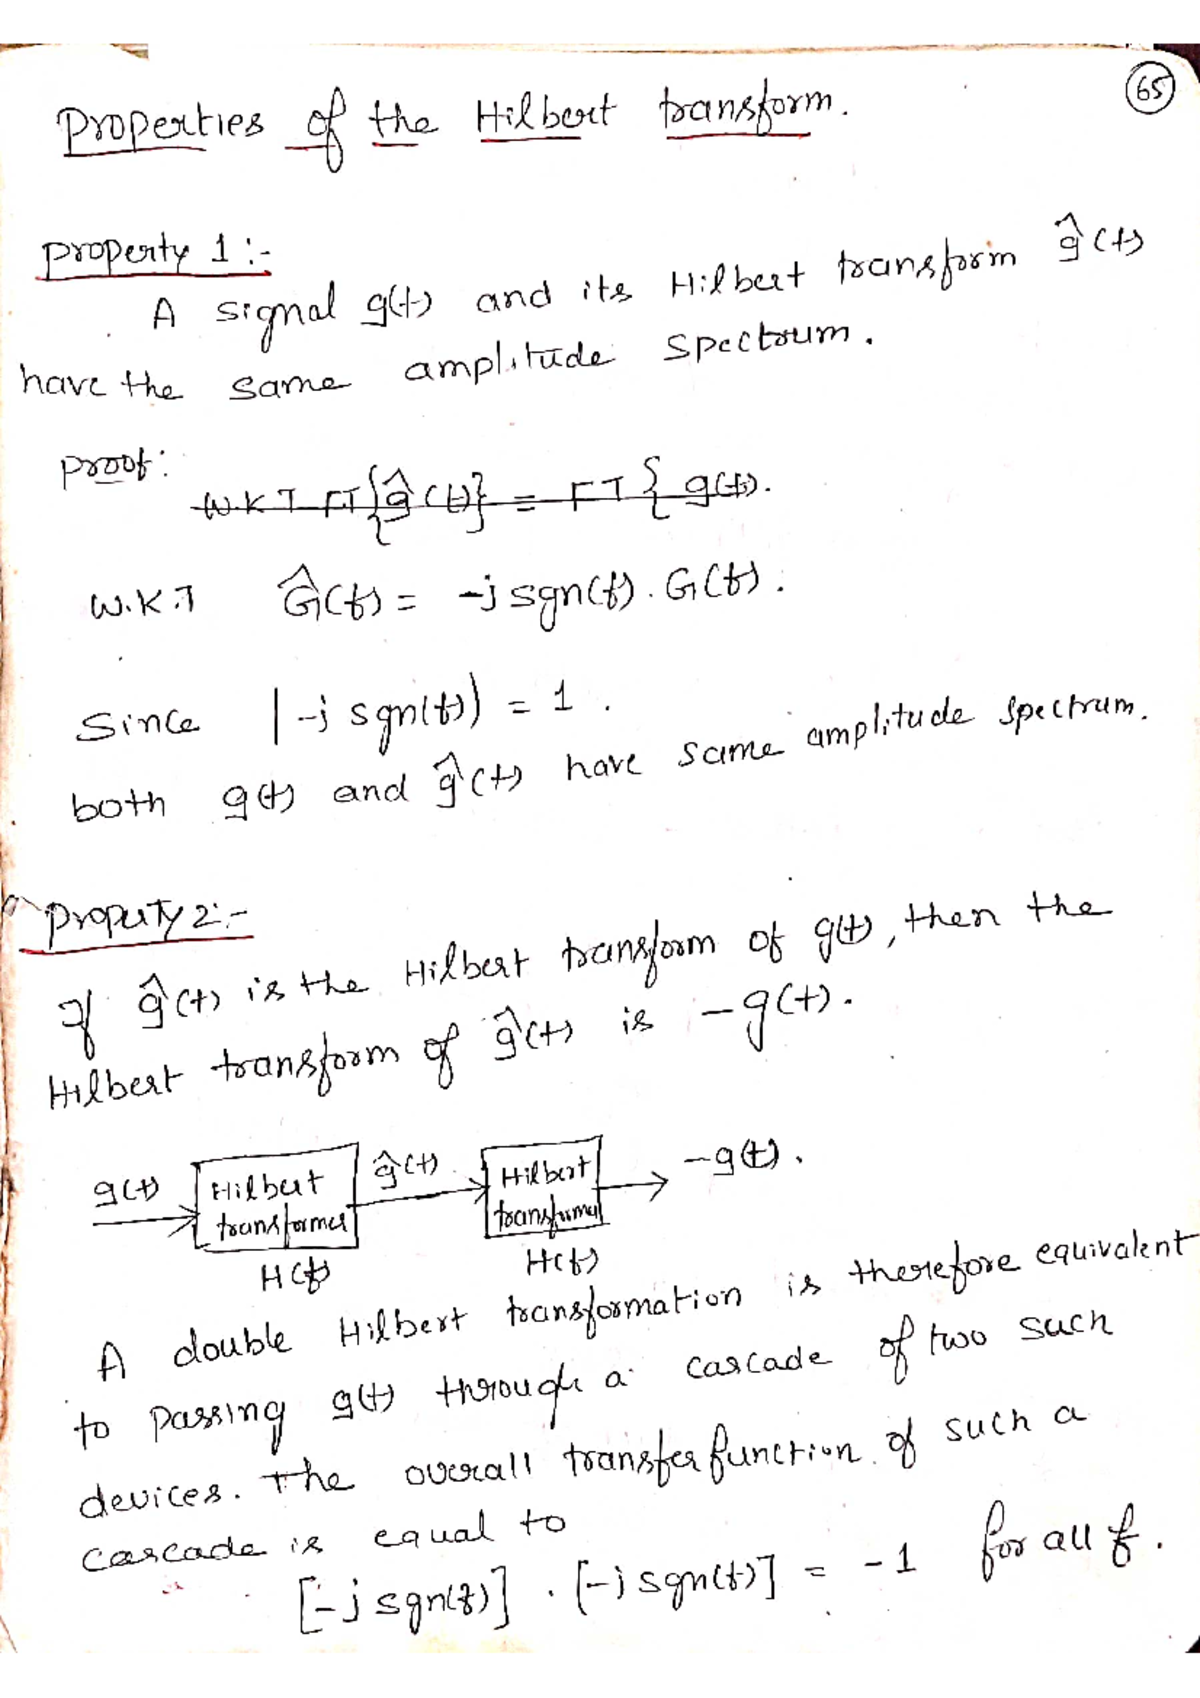 65
Properties of the Hilbert transform.
property 1 :-
A signal g(t) and its Hilbert transform ĝ(t)
have the same amplitude spectrum.
proof:
W.K.T FT{ĝ(t)} = FT{ g(t).
W.K.T Ĝ(f) = -j sgn(f). G(f).
Since |-j sgn(f)) = 1 .
both g(t) and ĝ(t) have same amplitude spectrum.
property 2:-
If ĝ(t) is the Hilbert transform of g(t), then the
Hilbert transform of ĝ(t) is -g(t).
g(t) Hilbert transformer ĝ(t) Hilbert transformer -g(t).
H(f) H(f)
A double Hilbert transformation is therefore equivalent
to passing g(t) through a cascade of two such
devices. The overall transfer function of such a
cascade is equal to
[-j sgn(f)] . [-j sgn(f)] = -1 for all f.